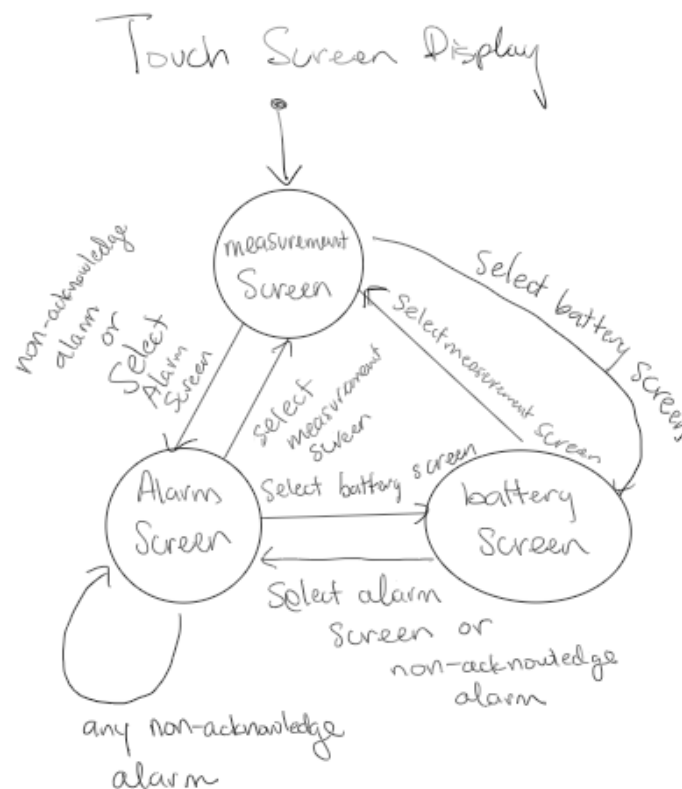 Touch Screen Display
measurement
Screen
non-acknowledge
alarm or
Select
Alarm
Screen
select
measurement
screen
Select measurement screen
Select battery screens
Alarm
Screen
Select battery screen
battery
Screen
Select alarm
Screen or
non-acknowledge
alarm
any non-acknowledge
alarm